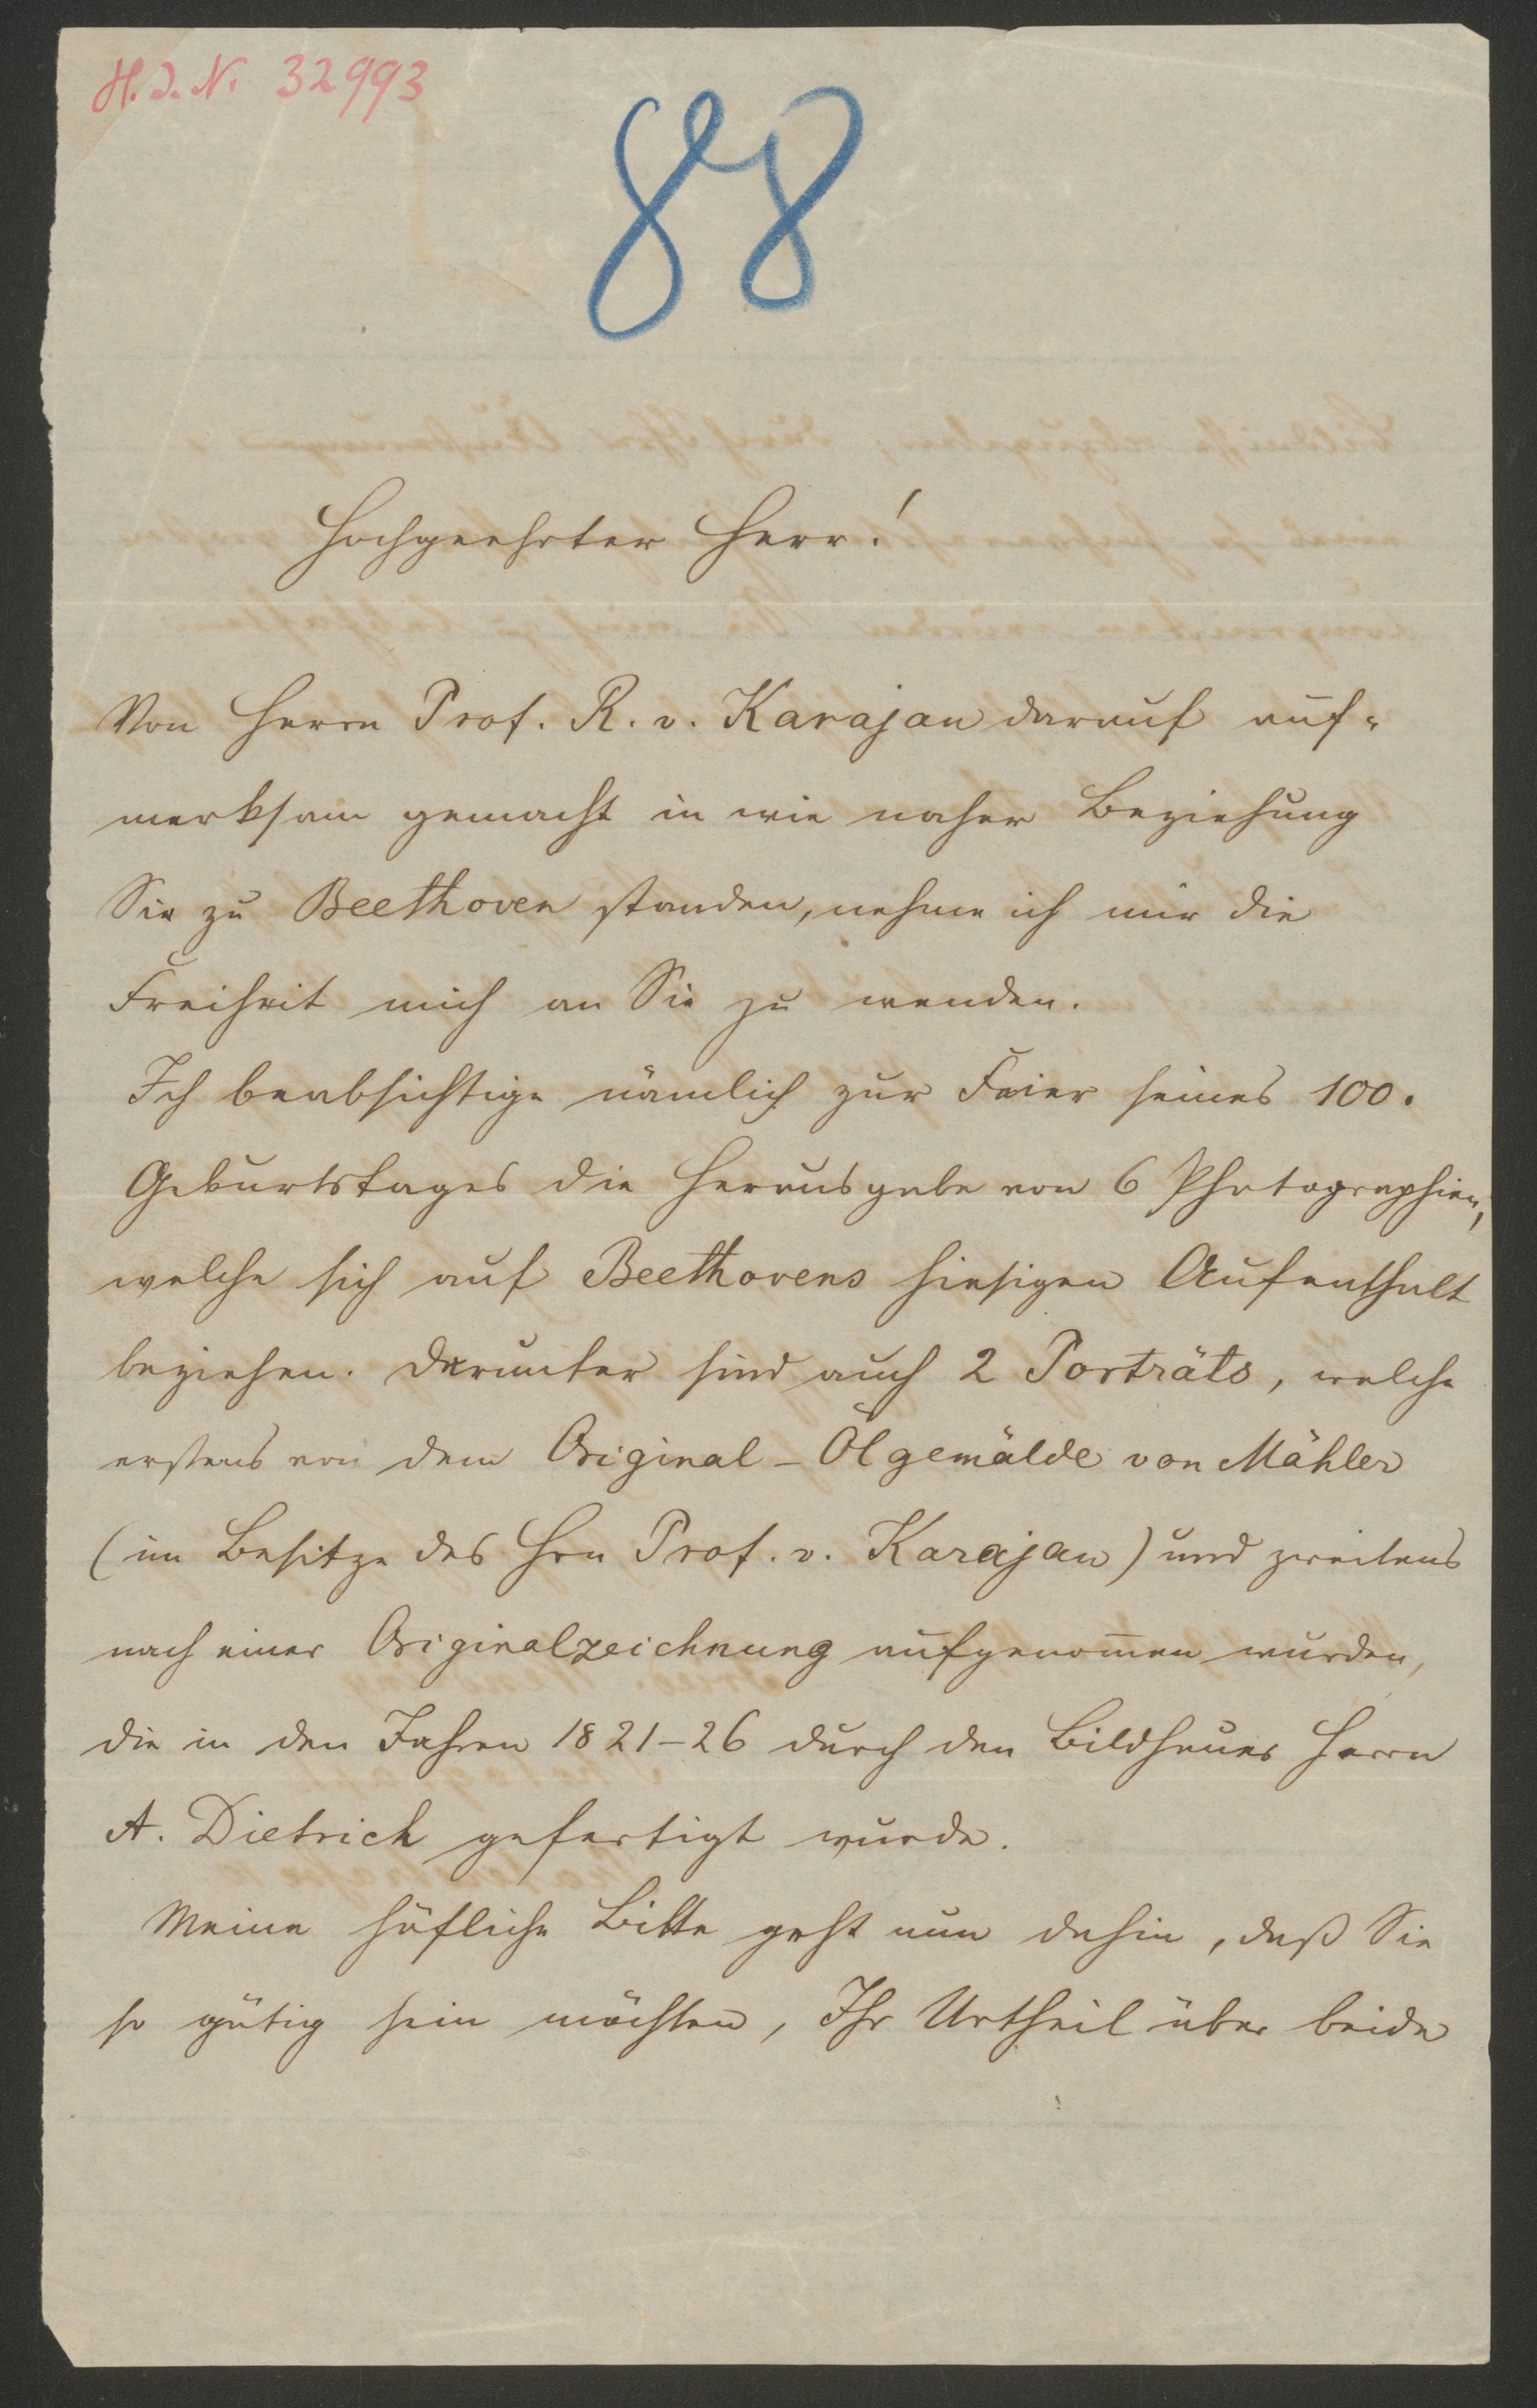 H. I. N. 32993
88
Hochgeehrter Herr!
Von Herrn Prof. R. v. Karajan darauf auf-
merksam gemacht in wie naher Beziehung
Sie zu Beethoven standen, nehme ich mir die
Freiheit mich an Sie zu wenden.
Ich beabsichtige nämlich zur Feier seines 100.
Geburtstages die Herausgabe von 6 Photographien,
welche sich auf Beethovens hiesigen Aufenthalt
beziehen. Darunter sind auch 2 Porträts, welche
erstens von dem Original-Ölgemälde von Mähler
(im Besitze des Hrn Prof. v. Karajan) und zweitens
nach einer Originalzeichnung aufgenom̄en wurden,
die in den Jahren 1821-26 durch den Bildhauer Herrn
A. Dietrich gefertigt wurde.
Meine höfliche Bitte geht nun dahin, daß Sie
so gütig sein möchten, Ihr Urtheil über beide